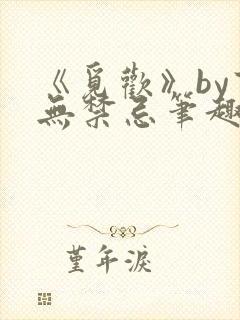 《覓歡》by
無禁忌筆趣
堇年淚